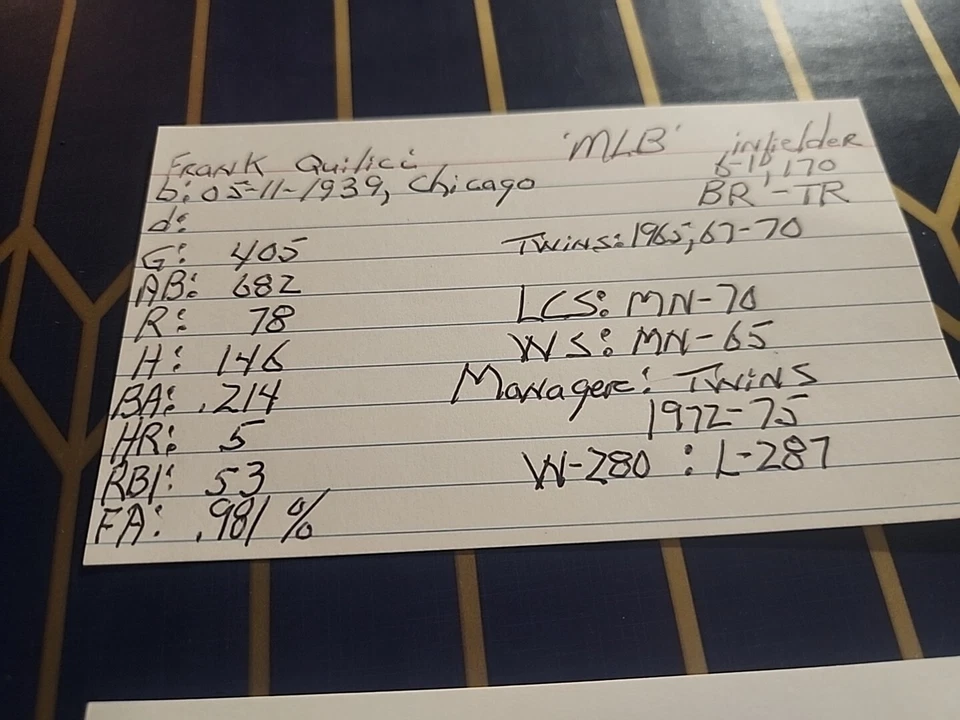 Frank Quilici 'MLB' infielder
b: 05-11-1939, Chicago 6-1", 170
d: BR'-TR
G: 405 Twins: 1965, 67-70
AB: 682
R: 78 LCS: MN-70
H: 146 WS: MN-65
BA: .214 Manager: Twins
HR: 5 1972-75
RBI: 53 W-280 : L-287
FA: .981 %